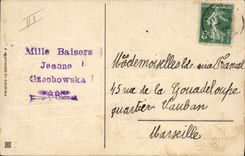 Mille Baisers
Jeanne
Czechowska
Mademoiselles
45 rue de la Gouadeloupe
quartier Vauban
Marseille